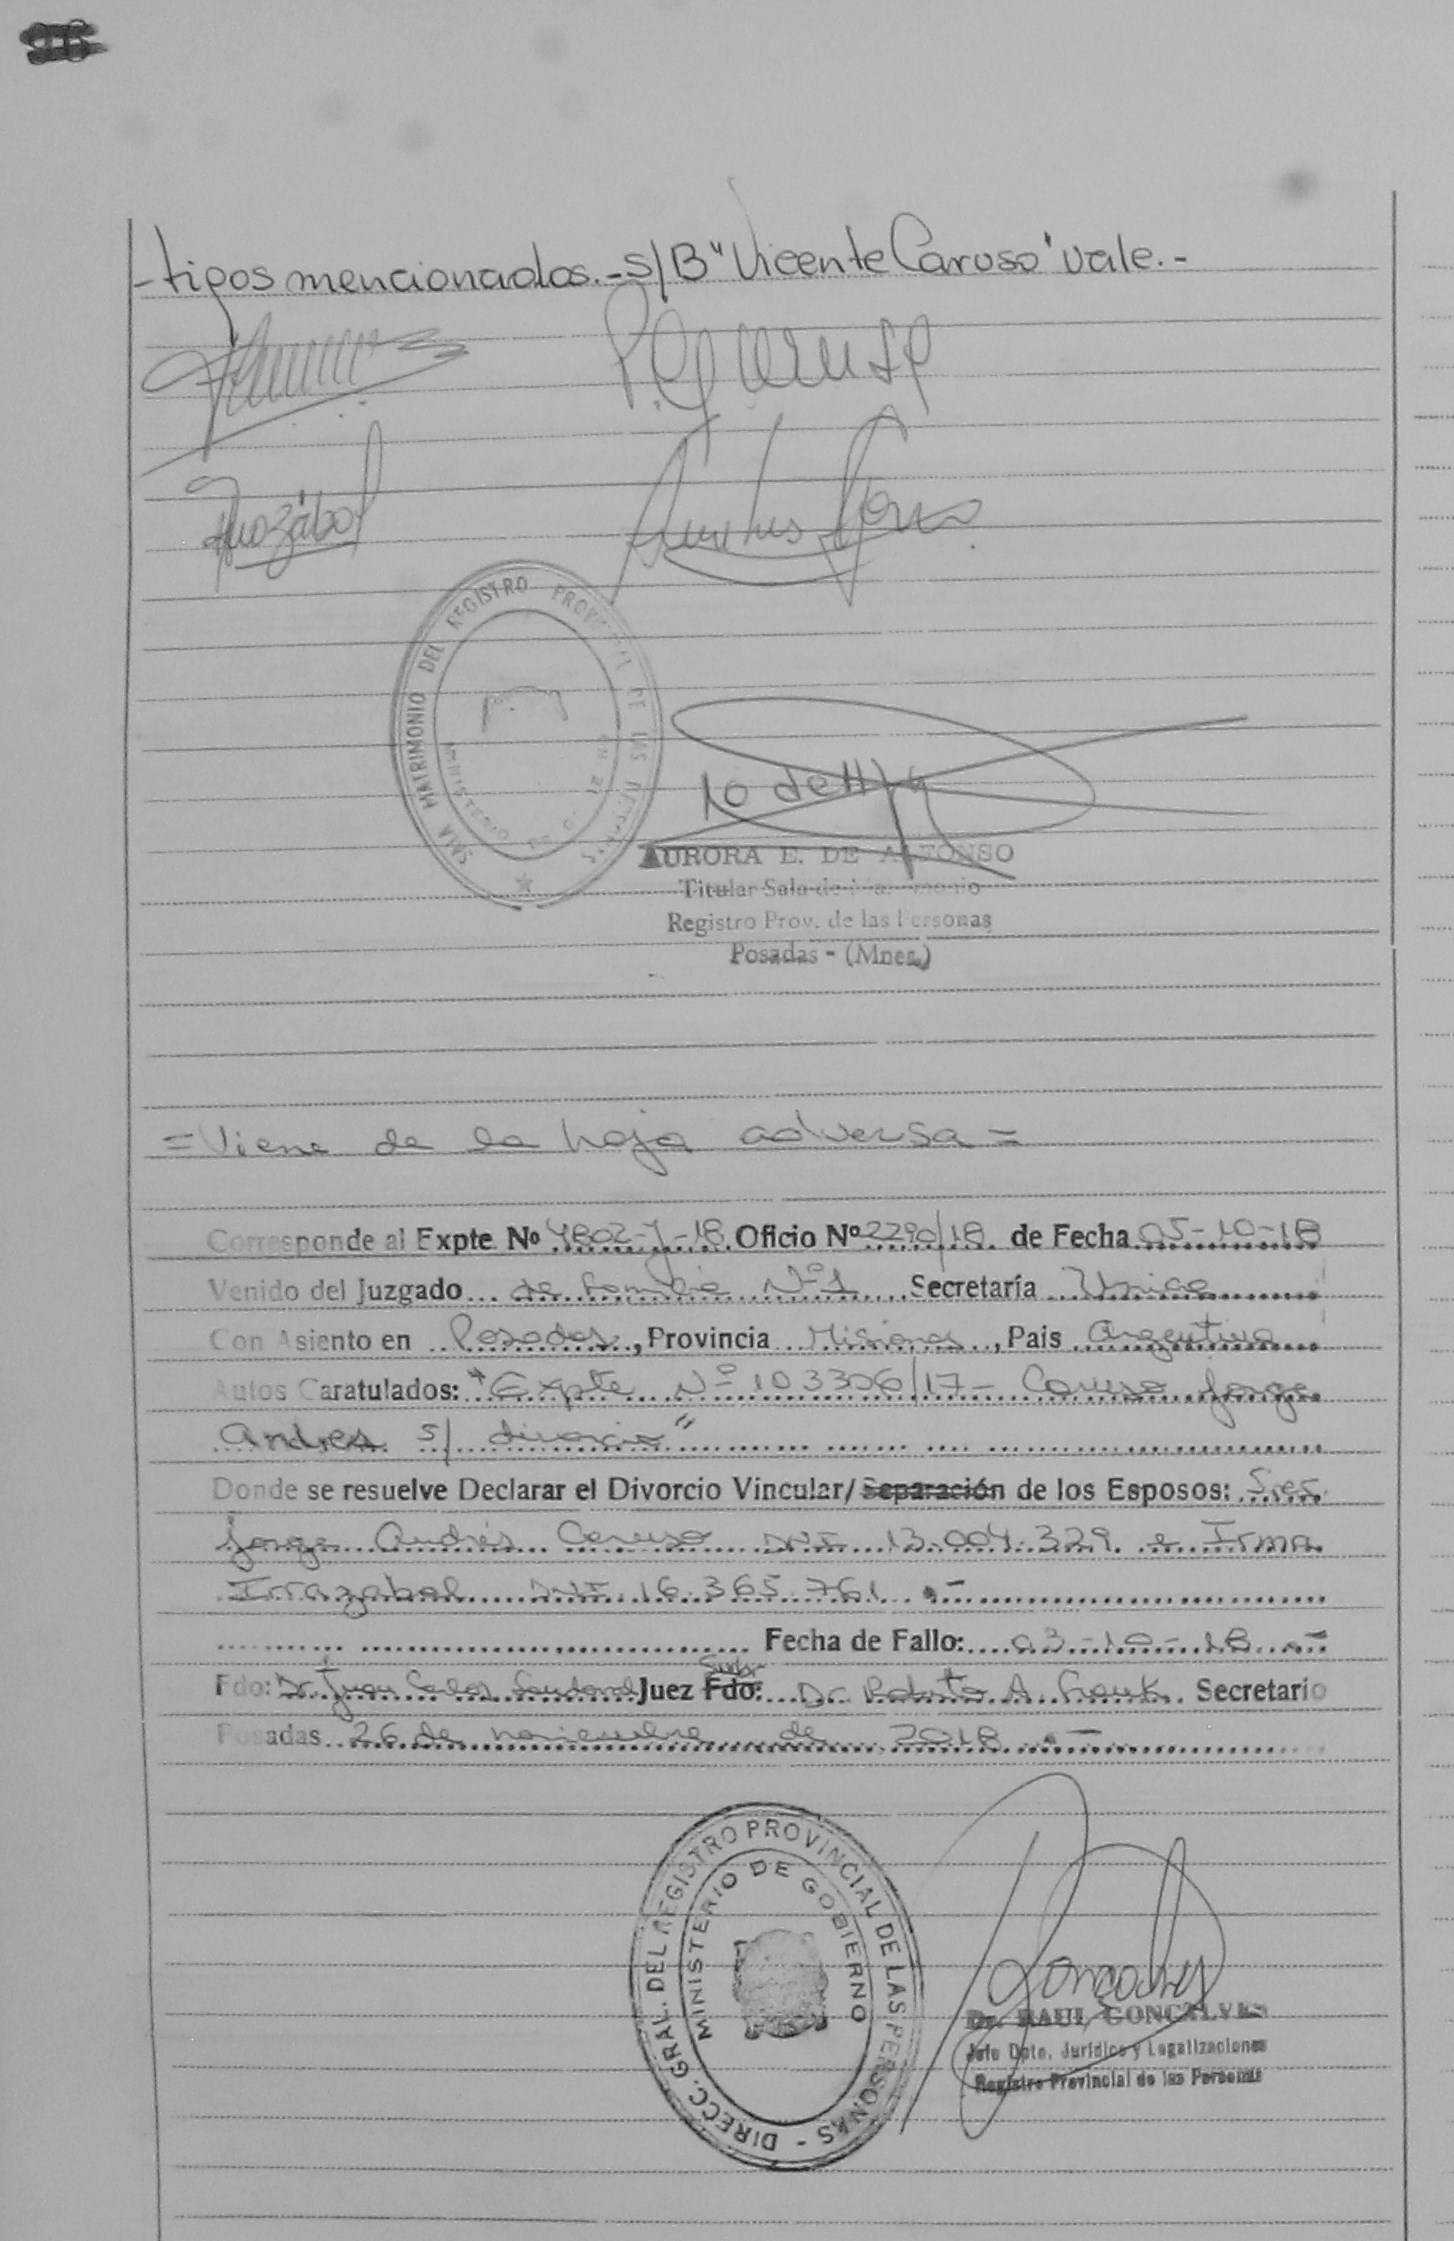 -tipos mencionados.-S/B "Vicente Caruso" vale.-
Irrazábal
SALA MATRIMONIO DEL REGISTRO PROVINCIAL DE LAS PERSONAS
AURORA E. DE ALFONSO
Titular Sala de Matrimonio
Registro Prov. de las Personas
Posadas - (Mnes.)
=Viene de la hoja adversa=
Corresponde al Expte Nº 4802-J-18 Oficio Nº 2290/18 de Fecha 05-10-18
Venido del Juzgado de Familia Nº1 Secretaría Unica
Con Asiento en Posadas, Provincia Misiones, Pais Argentina
Autos Caratulados: "Expte Nº 103306/17- Caruso Jorge
Andres s/ divorcio"
Donde se resuelve Declarar el Divorcio Vincular/Separación de los Esposos: Sres
Jorge Andrés Caruso DNI 13.004.329 e Irma
Irrazabal DNI 16.365.761 .-
Fecha de Fallo: 03-10-18 .-
Fdo: Dr. Juan Carlos Sandoval Juez Fdo: Dr. Roberto A. Frank Secretario
Posadas 26 de noviembre de 2018 .-
DIRECC. GRAL. DEL REGISTRO PROVINCIAL DE LAS PERSONAS -
MINISTERIO DE GOBIERNO
Goncalves
Dr. RAUL GONCALVES
Jefe Dpto. Jurídico y Legalizaciones
Registro Provincial de las Personas